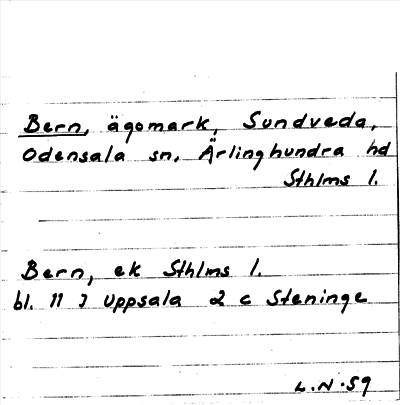 Bern, ägomark, Sundveda,
Odensala sn. Ärlinghundra hd
Sthlms l.
Bern, ek Sthlms l.
bl. 11 J Uppsala 2 c Steninge
L.N.59